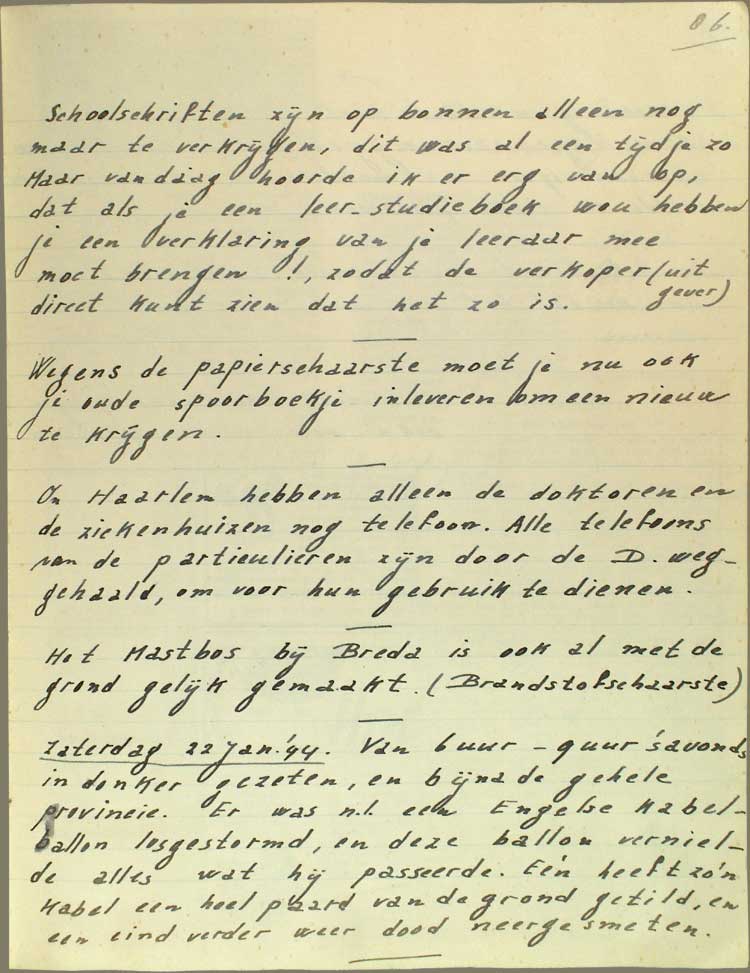 86.
Schoolschriften zijn op bonnen alleen nog
maar te verkrijgen, dit was al een tijdje zo
Maar vandaag hoorde ik er erg van op,
dat als je een leer-studieboek wou hebben
je een verklaring van je leeraar mee
moet brengen !, zodat de verkoper (uit
gever)
direct kunt zien dat het zo is.
Wegens de papierschaarste moet je nu ook
je oude spoorboekje inleveren om een nieuw
te krijgen.
In Haarlem hebben alleen de doktoren en
de ziekenhuizen nog telefoon. Alle telefoons
van de particulieren zijn door de D. weg-
gehaald, om voor hun gebruik te dienen.
Het Mastbos bij Breda is ook al met de
grond gelijk gemaakt. (Brandstofschaarste)
Zaterdag 22 Jan. '44. Van 6 uur - 9 uur 's avonds
in donker gezeten, en bijna de gehele
provincie. Er was n.l. een Engelse kabel-
ballon losgestormd, en deze ballon verniel-
de alles wat hij passeerde. Eén heeft zo'n
kabel een heel paard van de grond getild, en
een eind verder weer dood neergesmeten.